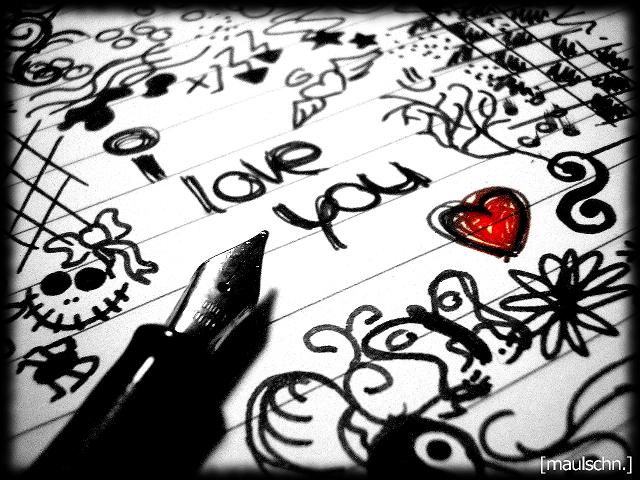 i love
you
[maulschn.]